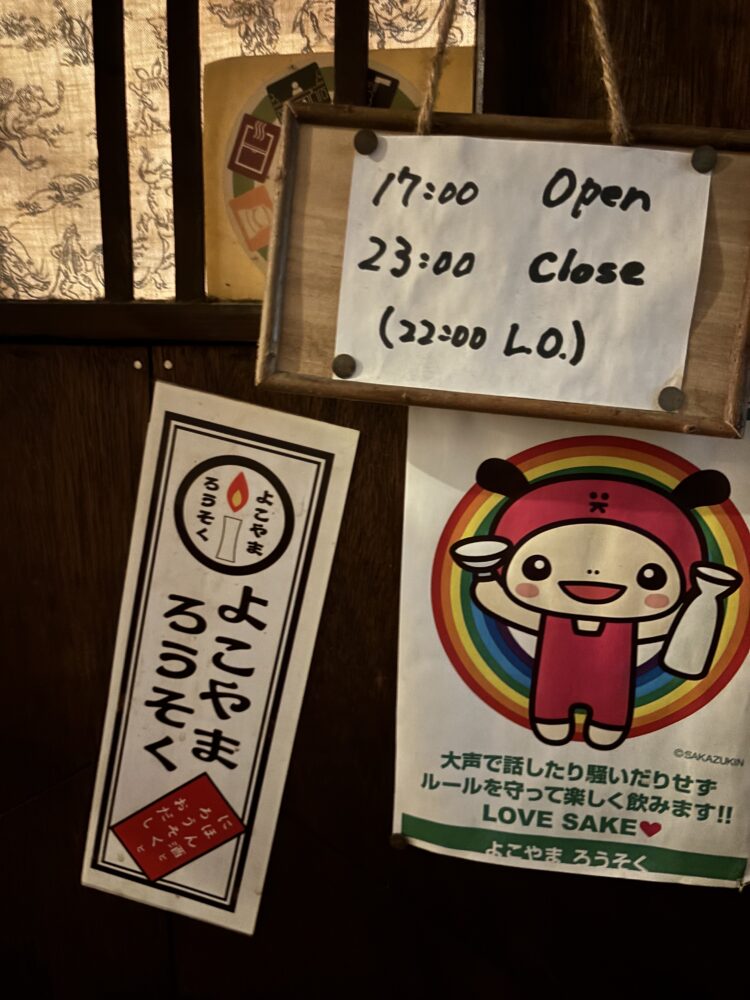 17:00 Open
23:00 Close
(22:00 L.O.)
よこやま
ろうそく
よこやま
ろうそく
にほん酒と
ろうそくと
おだし
©SAKAZUKIN
大声で話したり騒いだりせず
ルールを守って楽しく飲みます!!
LOVE SAKE
よこやま ろうそく